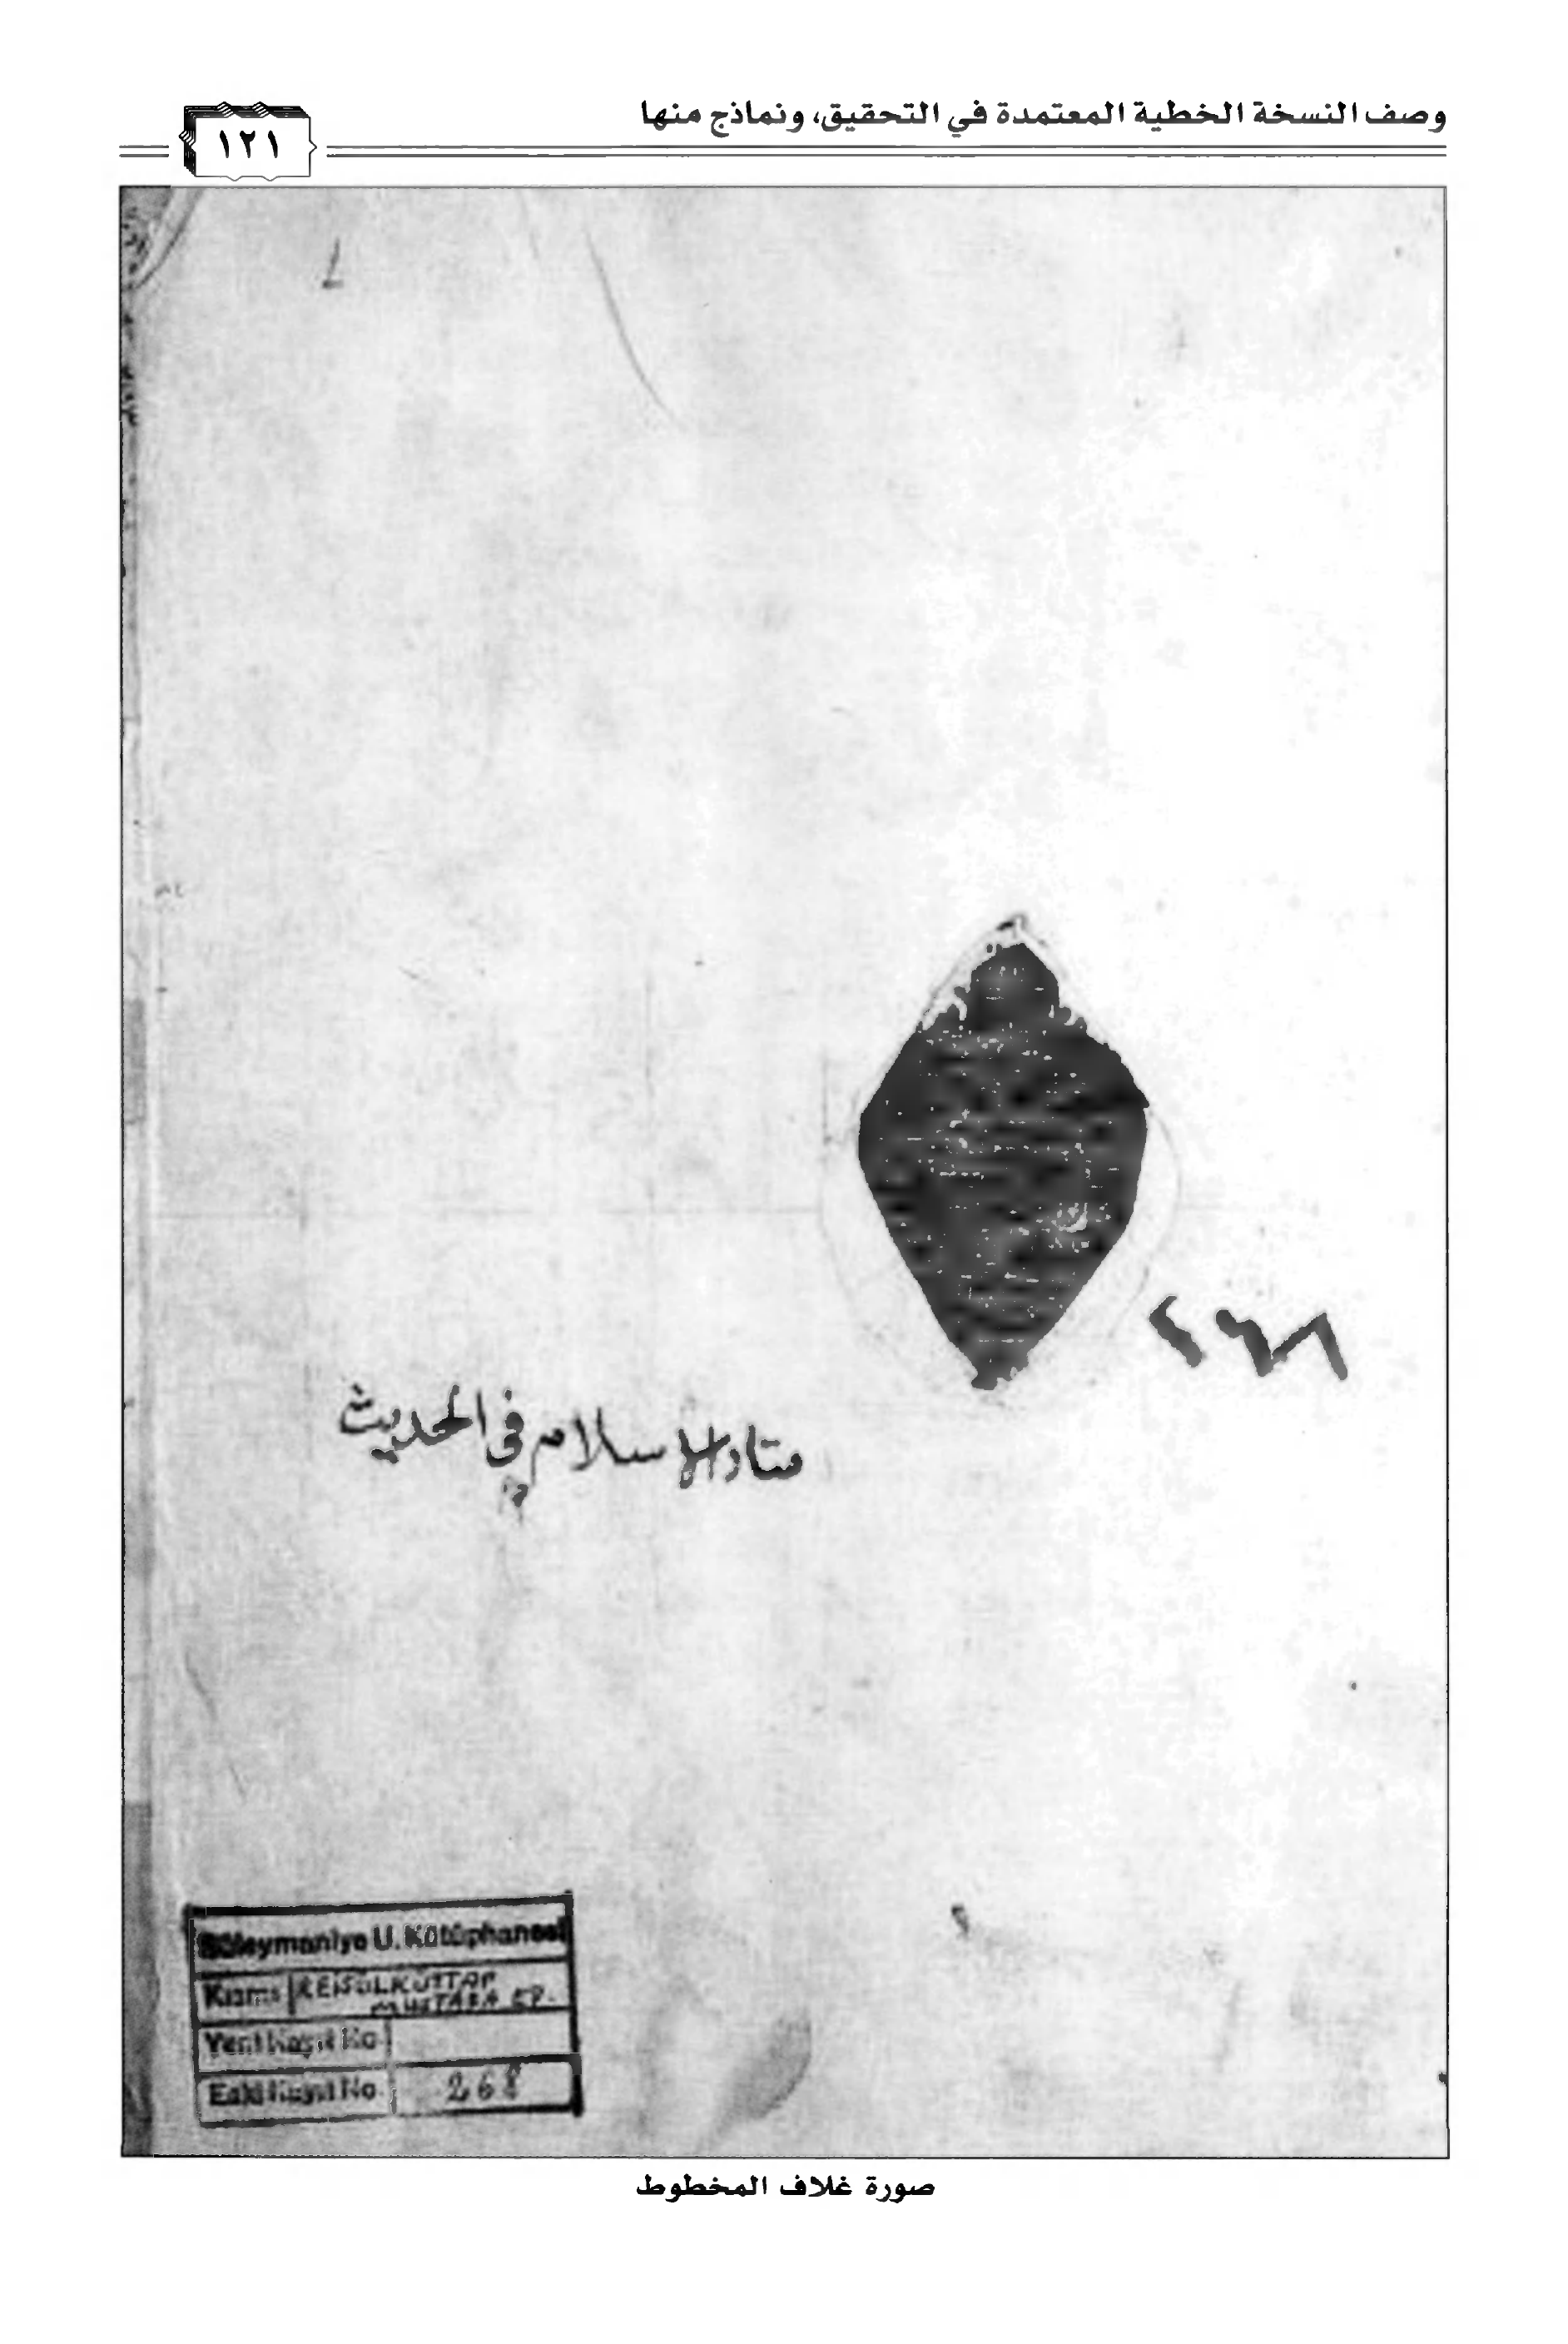 وصف النسخة الخطية المعتمدة في التحقيق، ونماذج منها
١٢١
٢٦٨
الاسلام في الحديث
Süleymaniye U. Kütüphanesi
Kısmı REİSÜLKÜTTAP
MUSTAFA EF.
Yeni Kayıt No
Eski Kayıt No 268
صورة غلاف المخطوط